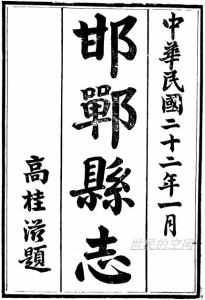 中華民國二十二年一月
邯鄲縣志
高桂滋題
世民的空间